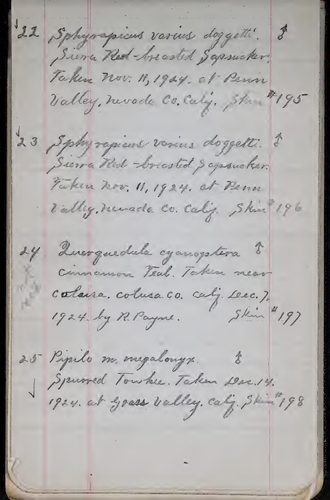 22 Sphyrapicus varius daggetti. ♂
Sierra Red-breasted Sapsucker.
Taken Nov. 11, 1924. at Penn
Valley, Nevada Co. Calif. Skin #195
23 Sphyrapicus varius daggetti. ♂
Sierra Red-breasted Sapsucker.
Taken Nov. 11, 1924. at Penn
Valley. Nevada Co. Calif. Skin #196
24 Querquedula cyanoptera ♂
Cinnamon Teal. Taken near
Colusa. Colusa Co. Calif. Dec. 7.
1924. by R. Payne. Skin #197
25 Pipilo m. megalonyx. ♂
Spurred Towhee. Taken Dec. 14.
1924. at Grass Valley. Calif. Skin #198